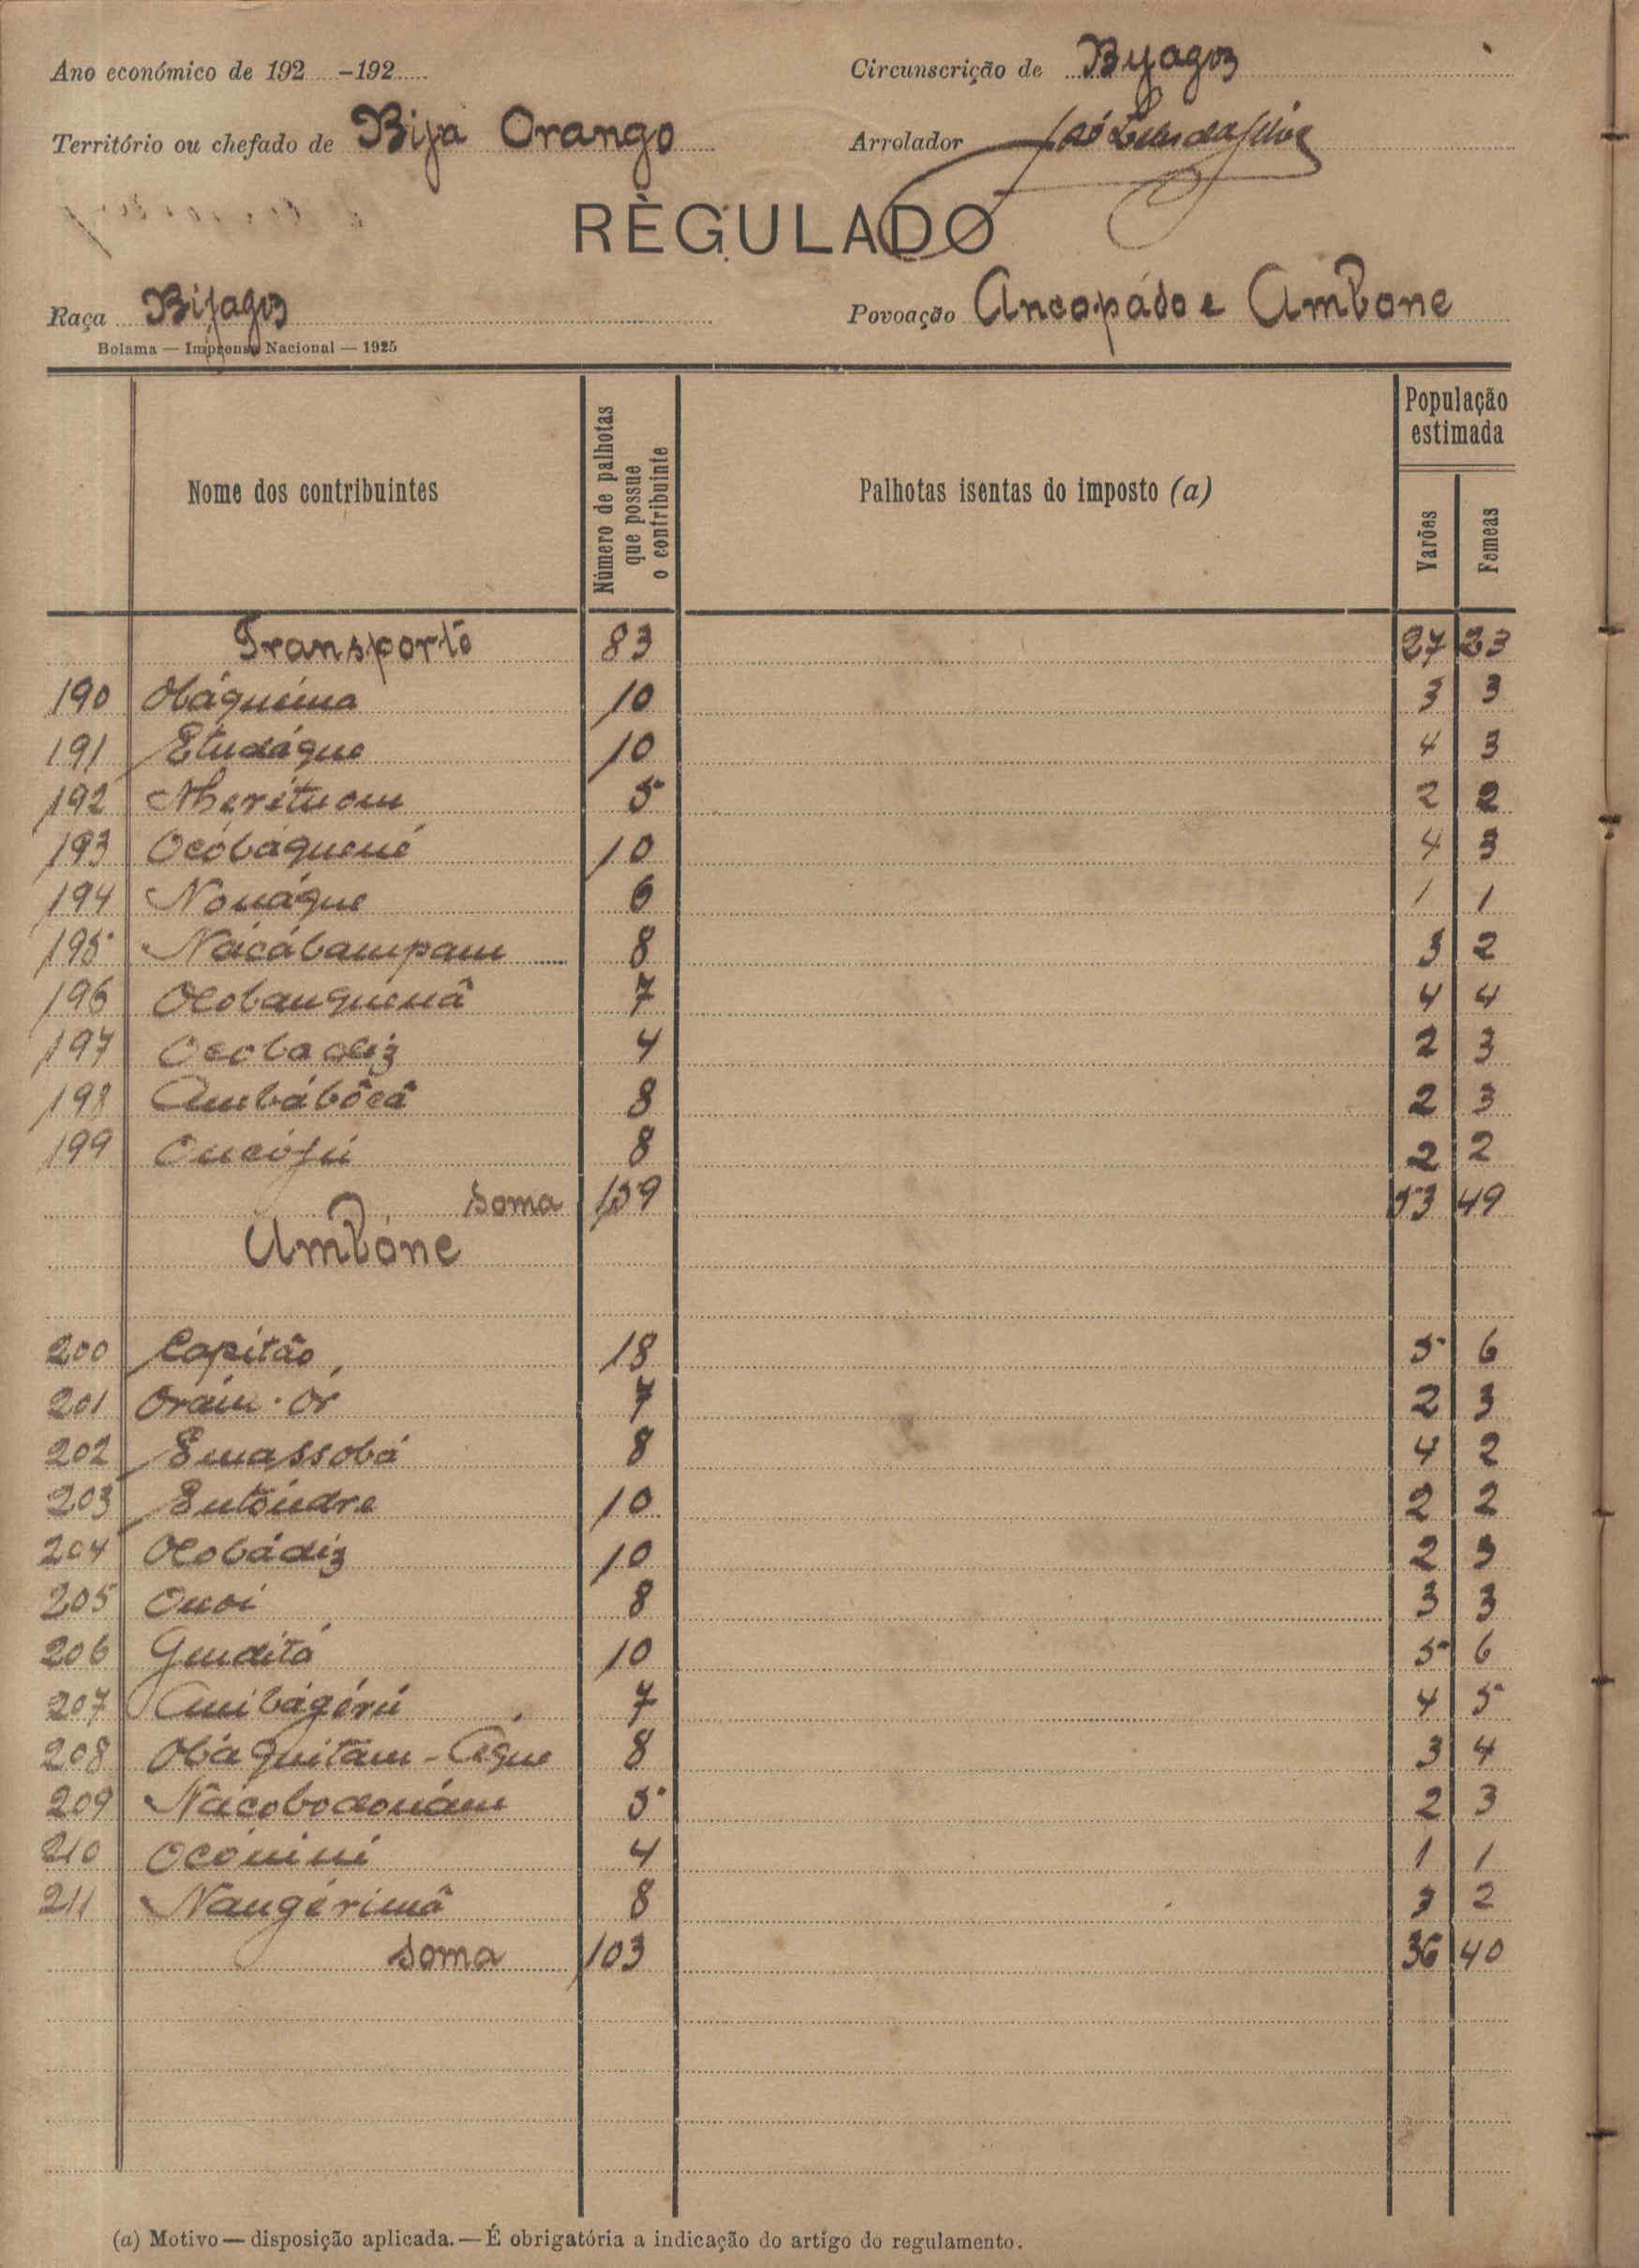 Ano económico de 192 -192
Circunscrição de Byagoz
Território ou chefado de Bija Orango
Arrolador José Luis da Silva
RÈGULADO
Raça Bijagoz
Povoação Ancopádo e Ambone
Bolama — Imprensa Nacional — 1925
Nome dos contribuintes
Número de palhotas que possue o contribuinte
Palhotas isentas do imposto (a)
População estimada
Varões
Femeas
Transporte 83 27 23
190 Obáquéima 10 3 3
191 Etudáque 10 4 3
192 Nherituom 5 2 2
193 Ocobáquené 10 4 3
194 Nonáque 6 1 1
195 Nácábampam 8 3 2
196 Ocobanquênâ 7 4 4
197 Ocobadiz 4 2 3
198 Ambábôcâ 8 2 3
199 8 2 2
soma 159 53 49
Ambóne
200 Capitão 18 5 6
201 Oráin-Ór 7 2 3
202 Emassobá 8 4 2
203 Entóndre 10 2 2
204 Ocobádiz 10 2 3
205 Onoi 8 3 3
206 10 5 6
207 Anibágérú 7 4 5
208 Obáquitam-Águe 8 3 4
209 Nácobodonám 5 2 3
210 Ocónini 4 1 1
211 Nangérimâ 8 3 2
soma 103 36 40
(a) Motivo — disposição aplicada. — É obrigatória a indicação do artigo do regulamento.